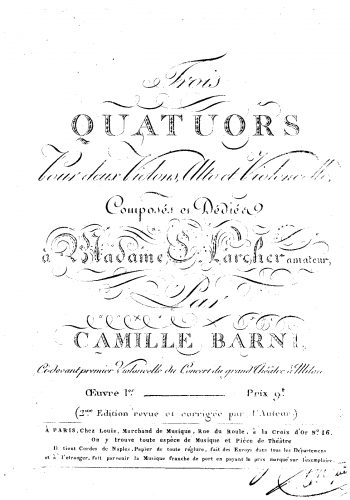 Trois
QUATUORS
Pour deux Violons, Alto et Violoncelle,
Composés et Dédiés
à Madame Larcher amateur,
Par
CAMILLE BARNI,
Ci-devant premier Violoncelle du Concert du grand Théâtre à Milan
Œuvre 1er Prix 9f
(2me Edition revue et corrigée par l'Auteur)
A PARIS, Chez Louis, Marchand de Musique, Rue du Roule, à la Croix d'Or No. 16.
On y trouve toute espèce de Musique et Pièce de Théâtre
Il tient Cordes de Naples, Papier de toute réglure, fait des Envoys dans tous les Départemens
et à l'étranger, fait parvenir la Musique franche de port en payant le prix marqué sur l'exemplaire.